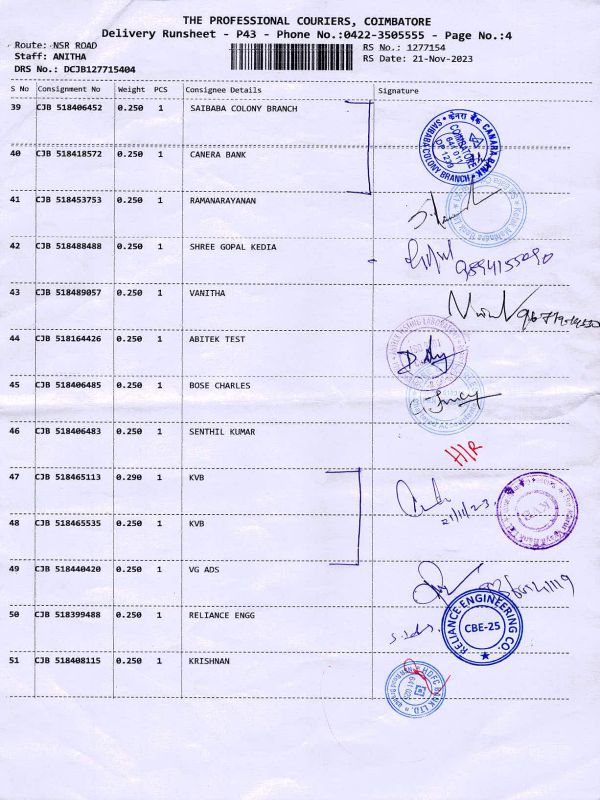 THE PROFESSIONAL COURIERS, COIMBATORE
Delivery Runsheet - P43 - Phone No.:0422-3505555 - Page No.:4
Route: NSR ROAD RS No.: 1277154
Staff: ANITHA RS Date: 21-Nov-2023
DRS No.: DCJB127715404
S No Consignment No Weight PCS Consignee Details Signature
39 CJB 518406452 0.250 1 SAIBABA COLONY BRANCH
40 CJB 518418572 0.250 1 CANERA BANK
केनरा बैंक CANARA BANK
COIMBATORE
641 011
DP 1279
SAIBABA COLONY BRANCH
41 CJB 518453753 0.250 1 RAMANARAYANAN
42 CJB 518488488 0.250 1 SHREE GOPAL KEDIA
43 CJB 518489057 0.250 1 VANITHA
44 CJB 518164426 0.250 1 ABITEK TEST
45 CJB 518406485 0.250 1 BOSE CHARLES
46 CJB 518406483 0.250 1 SENTHIL KUMAR
H/R
47 CJB 518465113 0.290 1 KVB
21/11/23
48 CJB 518465535 0.250 1 KVB
49 CJB 518440420 0.250 1 VG ADS
50 CJB 518399488 0.250 1 RELIANCE ENGG
RELIANCE ENGINEERING CO.
CBE-25
51 CJB 518408115 0.250 1 KRISHNAN
HDFC BANK LTD.
641 025